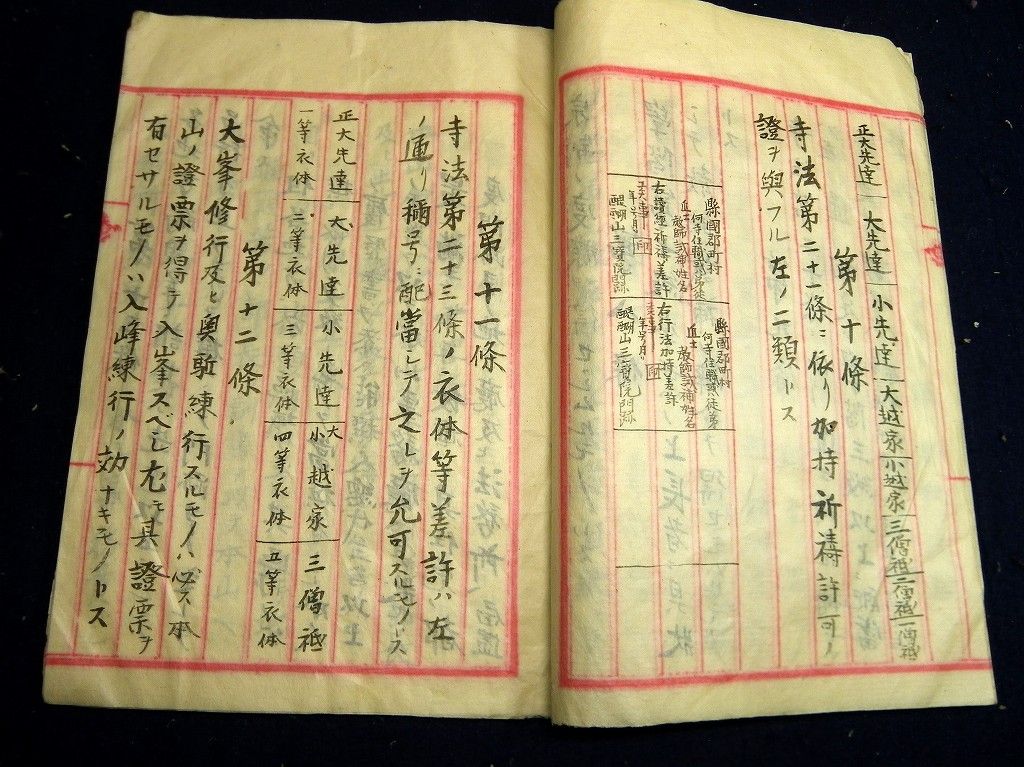 正大先達 大先達 小先達 大越家 小越家 三僧祗 二僧祗 一僧祗
第十條
寺法第二十一條ニ依リ加持祈禱許可ノ
證ヲ與フル左ノ二類トス
縣國郡町村
何寺住職或ハ弟徒
教師試補姓名
右讀經祈禱差許
年号月
印
醍醐山三寳院門跡
縣國郡町村
何寺住職或ハ徒弟
教師試補姓名
右行法加持差許
年号月
印
醍醐山三寳院門跡
第十一條
寺法第二十三條ノ衣体等差許ハ左
ノ通リ稱号ニ配當シテ之レヲ允可スルモノトス
正大先達 大先達 小先達 大小越家 三僧祗
一等衣体 二等衣体 三等衣体 四等衣体 五等衣体
第十二條
大峯修行及ヒ奥駈練行スルモノハ必ス本
山ノ證票ヲ得テ入峯スベシ尤モ其證票ヲ
有セサルモノハ入峰練行ノ効ナキモノトス